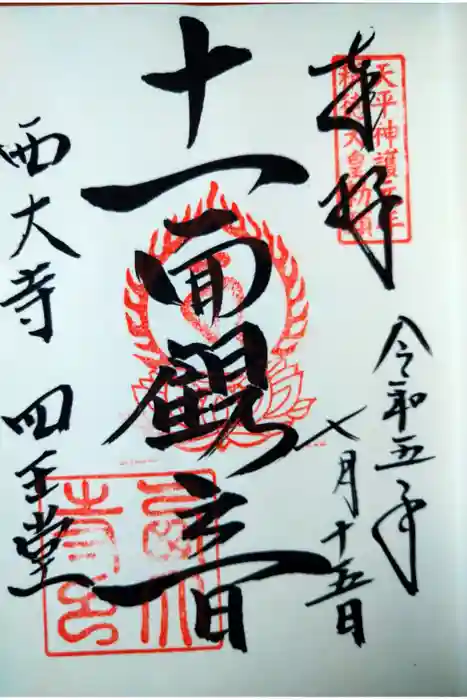 奉拝
天平神護元年
称徳天皇勅願
令和五年
七月十五日
十一面観音
西大寺 四王堂